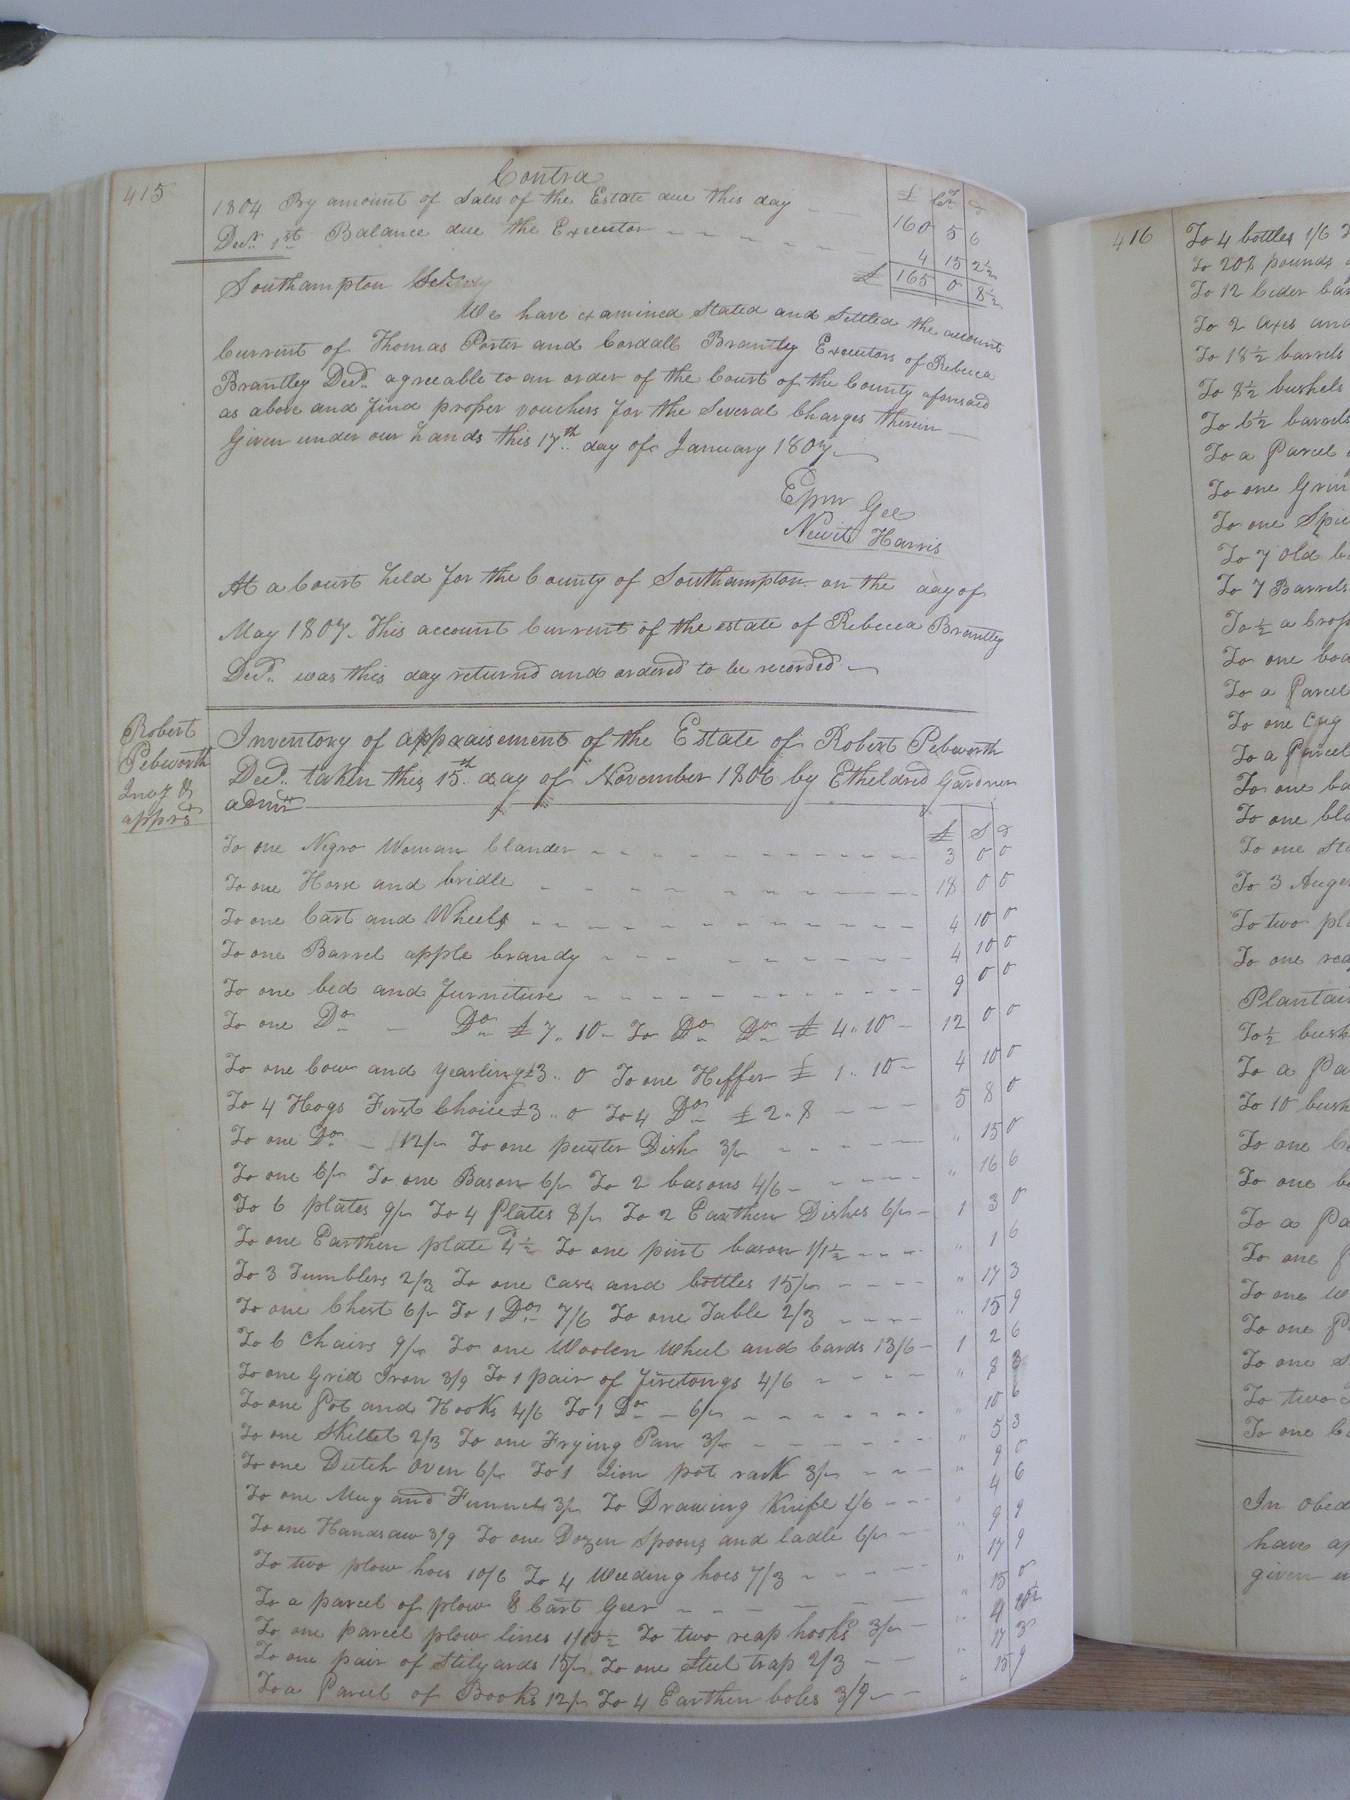 415
Contra
£ Cr d
1804 By amount of Sales of the Estate due this day 160 5 6
Decr. 1st Balance due the Executor 4 15 2½
£ 165 0 8½
Southampton
We have examined Stated and Settled the account
Current of Thomas Porter and Cordall Brantley Executors of Rebecca
Brantley Decd. agreeable to an order of the Court of the County aforesaid
as above and find proper vouchers for the Several Charges therein
Given under our hands this 17th day of January 1807
Epm Gee
Newit Harris
At a Court held for the County of Southampton on the day of
May 1807. This account Current of the estate of Rebecca Brantley
Decd. was this day returnd and ordered to be recorded
Robert
Pebworth
Invy &
apprs
Inventory of appraisement of the Estate of Robert Pebworth
Decd. taken this 15th day of November 1806 by Etheldred Gardner
admr
£ S d
To one Negro Woman Clander 3 0 0
To one Horse and bridle 18 0 0
To one Cart and Wheels 4 10 0
To one Barrel apple brandy 4 10 0
To one bed and furniture 9 0 0
To one Do Do £ 7,, 10 To Do Do £ 4,, 10 12 0 0
To one Cow and yearling £3,, 0 To one Heffer £ 1,, 10 4 10 0
To 4 Hogs First Choice £3,, 0 To 4 Do £ 2,, 8 5 8 0
To one Do 12/ To one pewter Dish 3/ " 15 0
To one 6/ To one Bason 6/ To 2 basons 4/6 " 16 6
To 6 plates 9/ To 4 plates 8/ To 2 Earthen Dishes 6/ 1 3 0
To one Earthen plate 4½d To one pint bason 1/1½ " 1 6
To 3 Tumblers 2/3 To one case and bottles 15/ " 17 3
To one Chest 6/ To 1 Do 7/6 To one Table 2/3 " 15 9
To 6 Chairs 9/ To one Woolen wheel and Cards 13/6 1 2 6
To one Grid Iron 3/9 To 1 pair of firetongs 4/6 " 8 3
To one Pot and Hooks 4/6 To 1 Do 6/ " 10 6
To one Skillet 2/3 To one Frying Pan 3/ " 5 3
To one Dutch Oven 6/ To 1 Iron pot rack 3/ " 9 0
To one Mug and Funnel 3/ To Drawing Knife 1/6 " 4 6
To one Handsaw 3/9 To one Dozen Spoons and ladle 6/ " 9 9
To two plow hoes 10/6 To 4 Weeding hoes 7/3 " 17 9
To a parcel of plow & Cart Geer " 15 0
To one parcel plow lines 1/10½ To two reap hooks 3/ " 4 10½
To one pair of Stilyards 15/ To one Steel trap 2/3 " 17 3
To a Parcel of Books 12/ To 4 Earthen boles 3/9 " 15 9
416
To 4 bottles 1/6
To 208 pounds
To 12 Cider
To 2 axes and
To 18½ barrels
To 8½ bushels
To 6½ barrels
To a Parcel
To one
To one
To 7 old
To 7 Barrels
To ½ a
To one
To a Parcel
To one
To a Parcel
To one
To one
To one
To 3
To two
To one
To ½
To a
To 10
To one
To one
To a
To one
To one
To one
To one
To two
To one
In
have
given